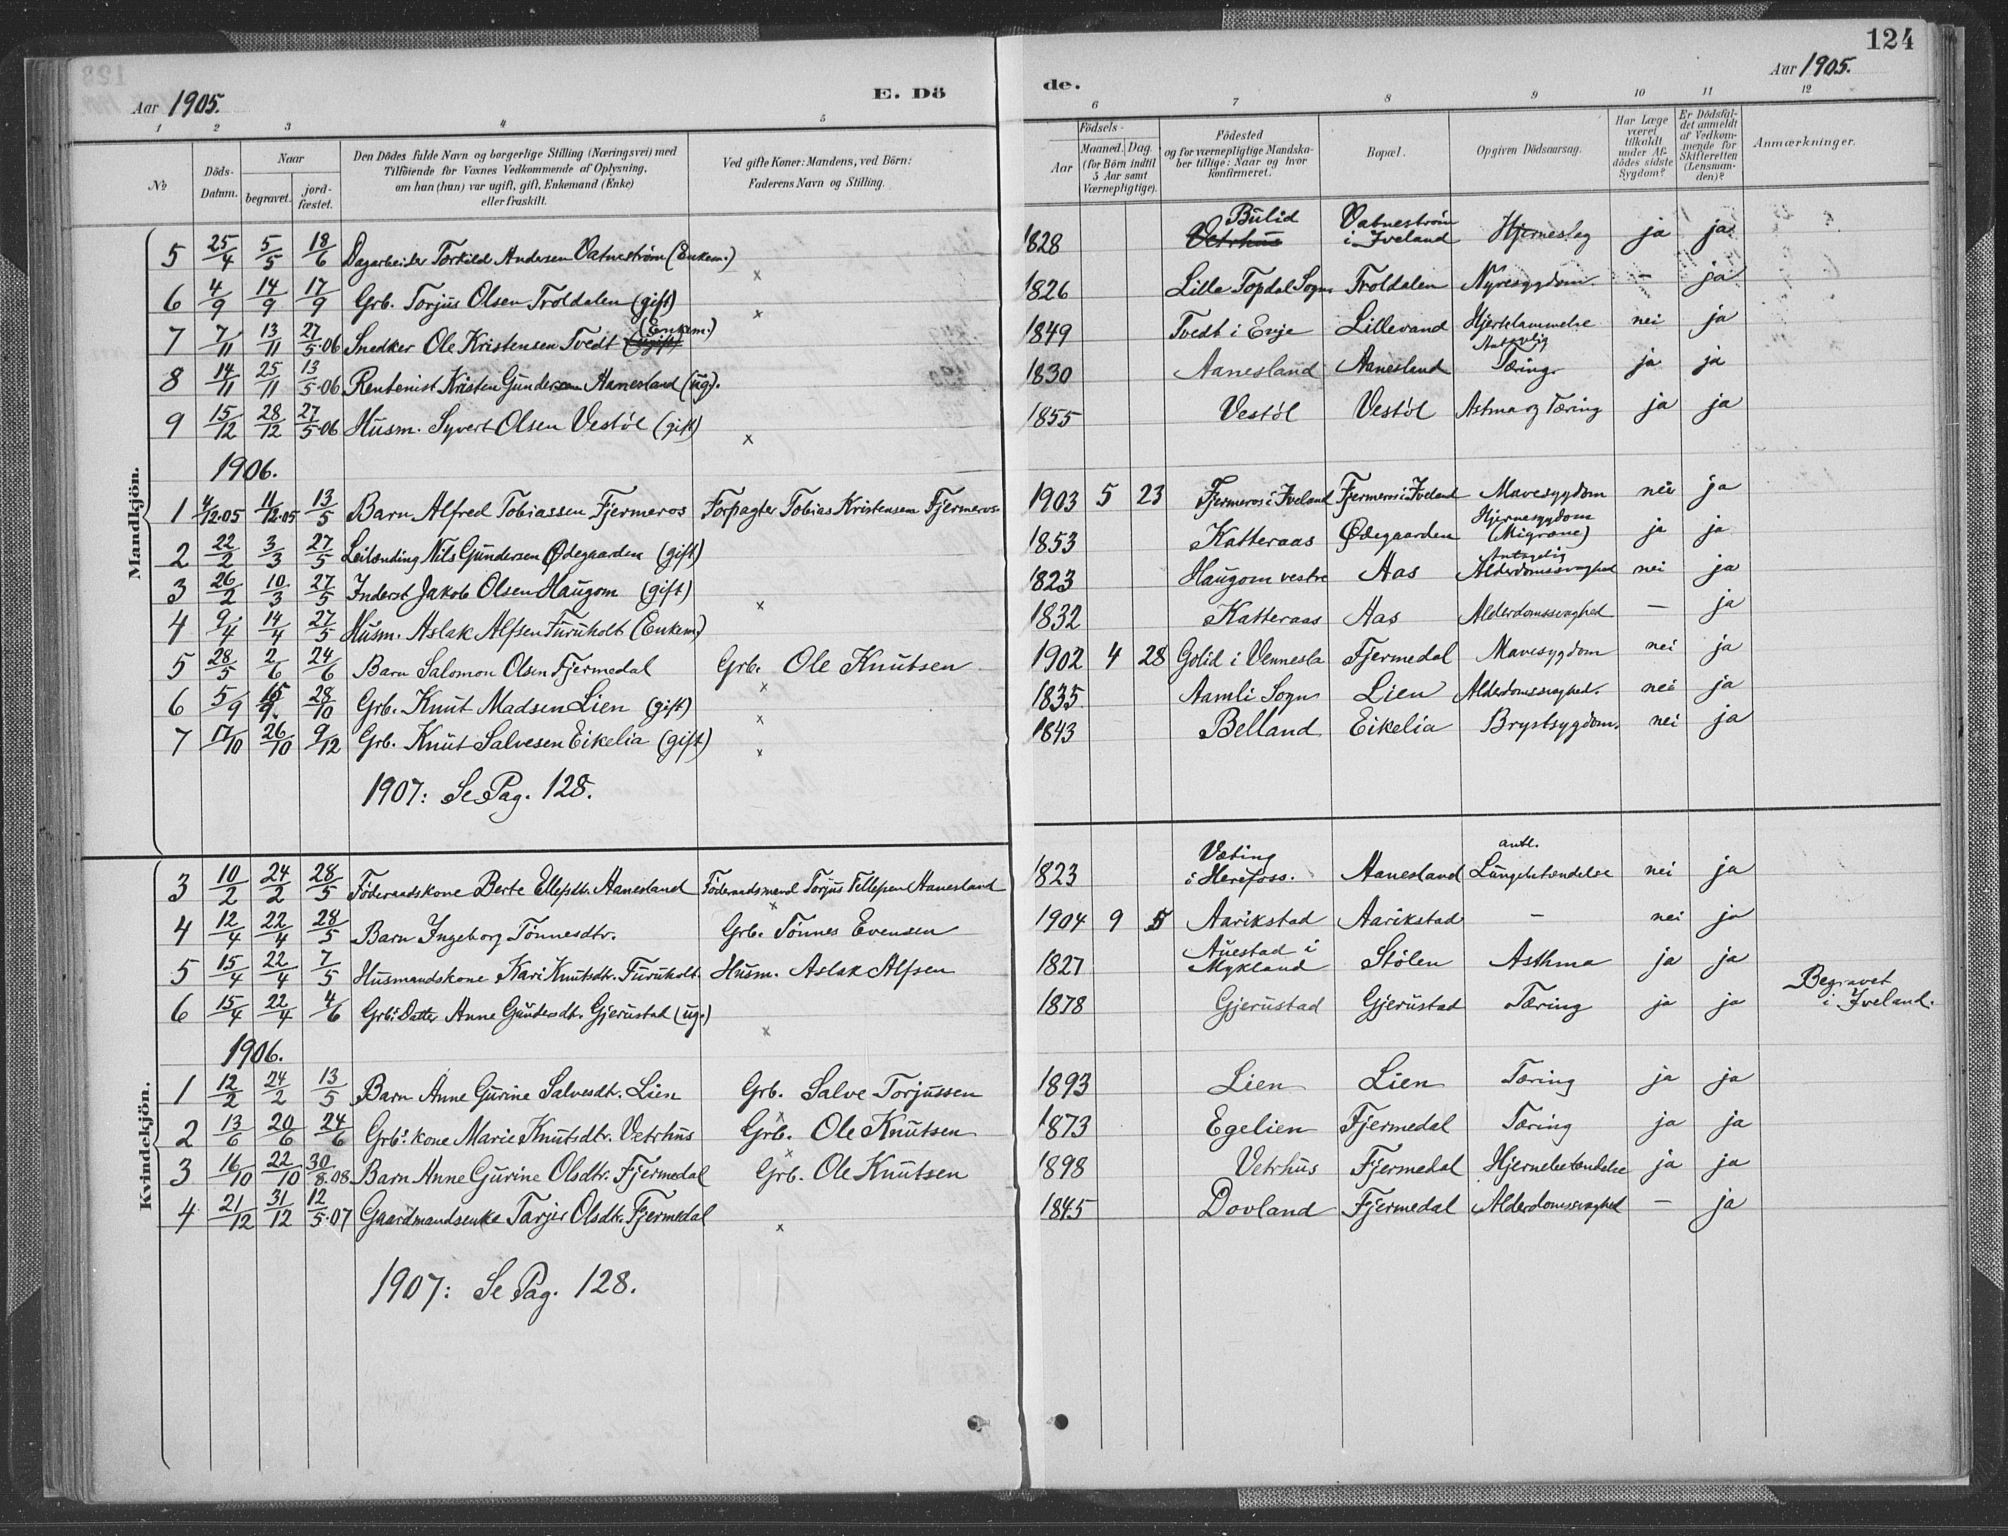 124
Aar 1905.
E. Dö
de.
Aar 1905.
1 2 3 4 5 6 7 8 9 10 11 12
№
Döds-Datum.
Naar
begravet.
jord-fæstet.
Den Dödes fulde Navn og borgerlige Stilling (Næringsvei) med
Tilföiende for Voxnes Vedkommende af Oplysning,
om han (hun) var ugift, gift, Enkemand (Enke)
eller fraskilt.
Ved gifte Koner: Mandens, ved Börn:
Faderens Navn og Stilling.
Födsels-
Aar
Maaned. Dag.
(for Börn indtil
5 Aar samt
Værnepligtige).
Födested
og for værnepligtige Mandska-
ber tillige: Naar og hvor
konfirmeret.
Bopæl.
Opgiven Dödsaarsag.
Har Læge
været
tilkaldt
under Af-
dödes sidste
Sygdom?
Er Dödsfal-
det anmeldt
af Vedkom-
mende for
Skifteretten
(Lensman-
den)?
Anmærkninger.
Mandkjön.
5 25/4 5/5 18/6 Dagarbeider Torkild Andersen Vatneström (Enkem.) 1828 Vetrhus Bulid Vatneström i Iveland Hjerneslag ja ja
6 4/9 14/9 17/9 Grb. Torjus Olsen Troldalen (gift) x 1826 Lilla Topdal Sogn Troldalen Nyresygdom. - ja
7 7/11 13/11 27/5.06 Snedker Ole Kristensen Tvedt (ugift) (Enkem.) x 1849 Tvedt i Evje Lillevand Hjertelammelse nei ja
8 14/11 25/11 13/5.06 Rentenist Kristen Gundersen Aanesland (ug). 1830 Aanesland Aanesland Antagelig Tæring ja ja
9 15/12 28/12 27/5.06 Husm. Syvert Olsen Vestöl (gift) x 1855 Vestöl Vestöl Astma og Tæring ja ja
1906.
1 4/12.05 11/12.05 13/5 Barn Alfred Tobiassen Fjermeros Forpagter Tobias Kristensen Fjermeros 1903 5 23 Fjermeros i Iveland Fjermeros i Iveland Mavesygdom nei ja
2 22/2 3/3 27/5 Leilænding Nils Gundersen Ødegaarden (gift) 1853 Katteraas Ødegaarden Hjernesygdom (Migræne) ja ja
3 26/2 10/3 27/5 Inderst Jakob Olsen Haugom (gift) 1823 Haugom vestre Aas Antagelig Alderdomssvaghed nei ja
4 9/4 14/4 27/5 Husm. Aslak Alfsen Furuholt (Enkem) x 1832 Katteraas Aas Alderdomssvaghed - ja
5 28/5 2/6 24/6 Barn Salomon Olsen Fjermedal Grb. Ole Knutsen 1902 4 28 Golid i Vennesla Fjermedal Mavesygdom nei ja
6 5/9 15/9. 28/10 Grb. Knut Madsen Lien (gift) x 1835 Aamli Sogn Lien Alderdomssvaghed. nei ja
7 17/10 26/10 9/12 Grb. Knut Salvesen Eikelia (gift) x 1843 Belland Eikelia Brystsygdom. nei ja
1907: Se Pag. 128.
Kvindekjön.
3 10/2 24/2 28/5 Föderaadskone Berte Ellefsdtr. Aanesland Föderaadsmand Torjus Tellefsen Aanesland 1823 Væting i Herefoss. Aanesland antl. Lungebetændelse nei ja
4 12/4 22/4 28/5 Barn Ingeborg Tönnesdtr. Grb. Tönnes Evensen x 1904 9 5 Aarikstad Aarikstad - nei ja
5 15/4 22/4 7/5 Husmandskone Kari Knutsdtr. Furuholt Husm. Aslak Alfsen 1827 Auestad i Mykland Stölen Asthma ja ja
6 15/4 22/4 4/6 Grbs Datter Anne Gundersdt. Gjerustad (ug.) x 1878 Gjerustad Gjerustad Tæring ja ja Begravet i Iveland.
1906.
1 12/2 24/2 13/5 Barn Anne Gurine Salvesdt. Lien Grb. Salve Torjussen 1893 Lien Lien Tæring ja ja
2 13/6 20/6 24/6 Grbs. kone Marie Knutsdtr. Vetrhus x Grb. Ole Knutsen 1873 Egelien Fjermedal Tæring ja ja
3 16/10 22/10 30/8.08 Barn Anne Gurine Olsdtr. Fjermedal x Grb. Ole Knutsen 1898 Vetrhus Fjermedal Hjernebetændelse ja ja
4 21/12 31/12 12/5.07 Gaardmandsenke Tarjer Olsdtr. Fjermedal x 1845 Dovland Fjermedal Alderdomssvaghed - ja
1907: Se Pag. 128.